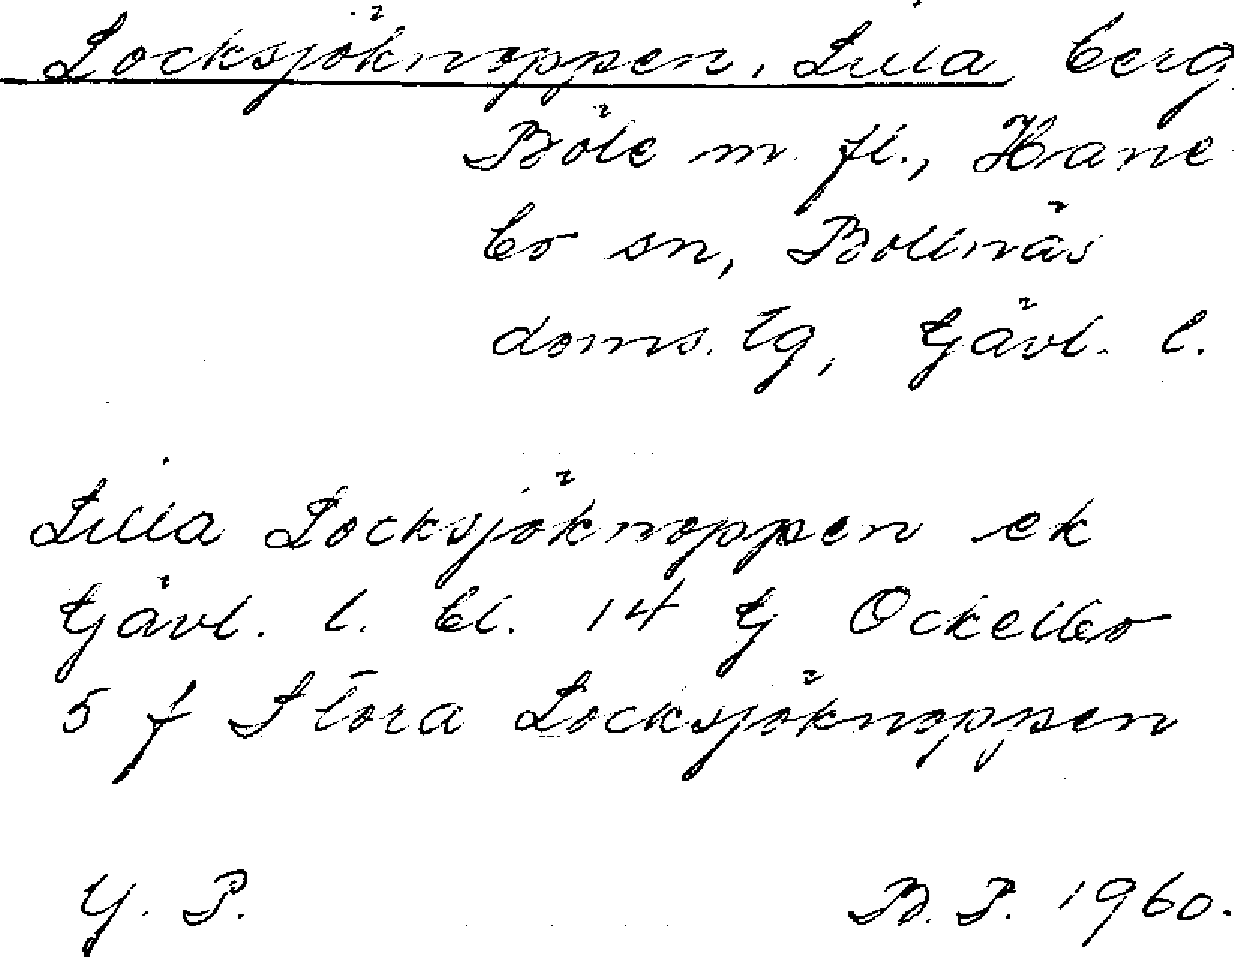 Locksjöknoppen, Lilla, berg
Böle m. fl., Hane
bo sn, Bollnäs
doms. tg, Gävl. l.
Lilla Locksjöknoppen ek
Gävl. l. bl. 14 G Ockelbo
5 f Stora Locksjöknoppen
Y. P. B. P. 1960.